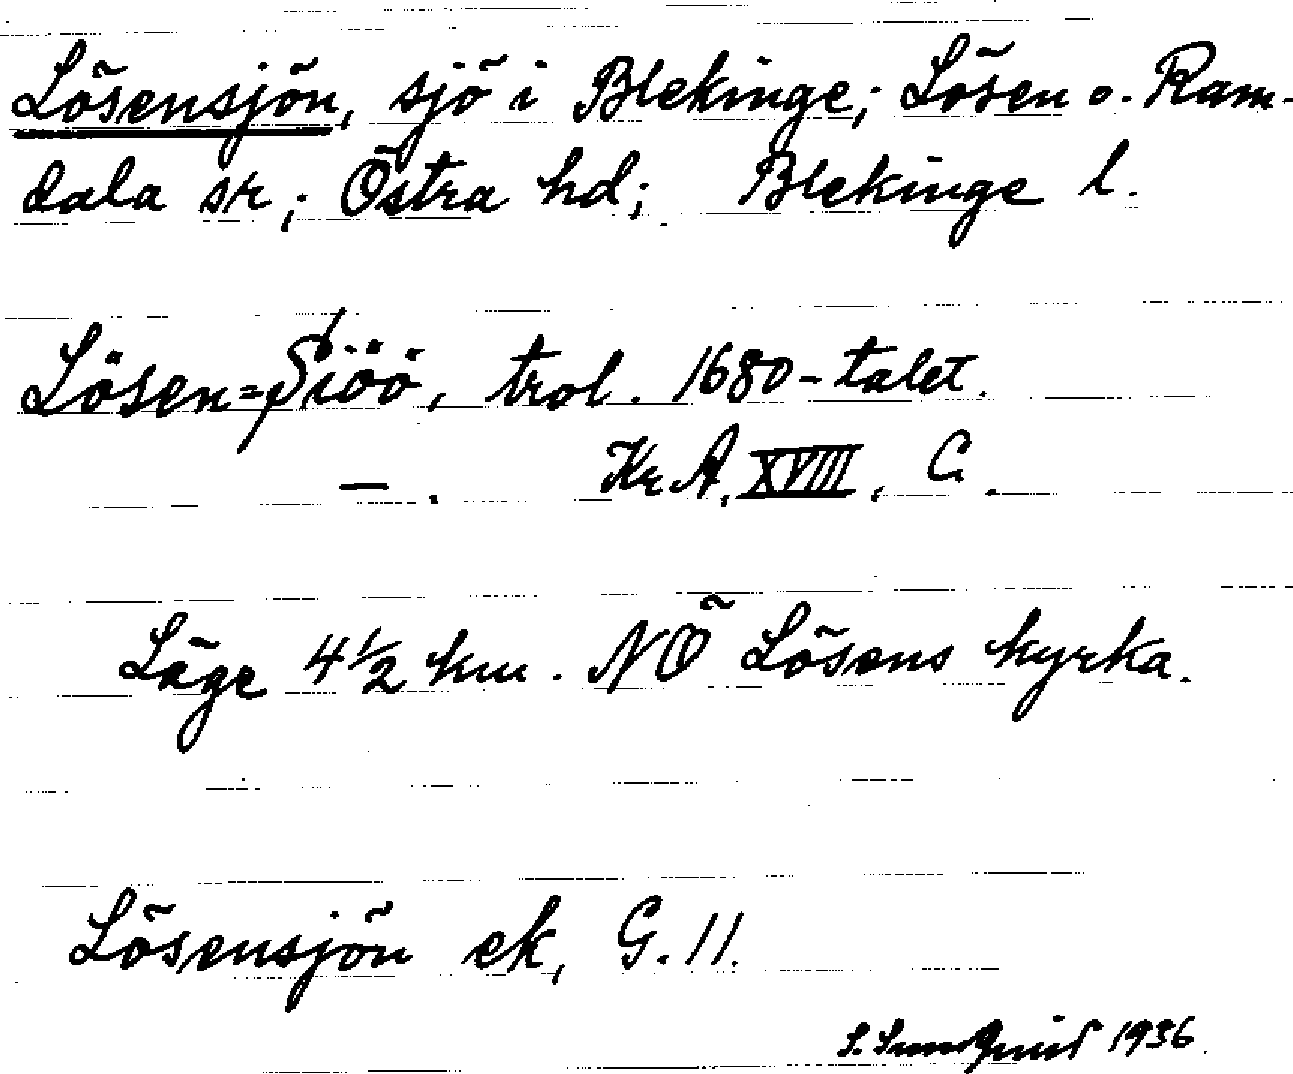 Lösensjön, sjö i Blekinge; Lösen o. Ram-
dala sr; Östra hd; Blekinge l.
Lösen=Siöö, trol. 1680-talet.
—. Kr A, XVIII, C.
Läge 4 1/2 km. NÖ Lösens kyrka.
Lösensjön ek, G. 11.
S. Sundquist 1936.